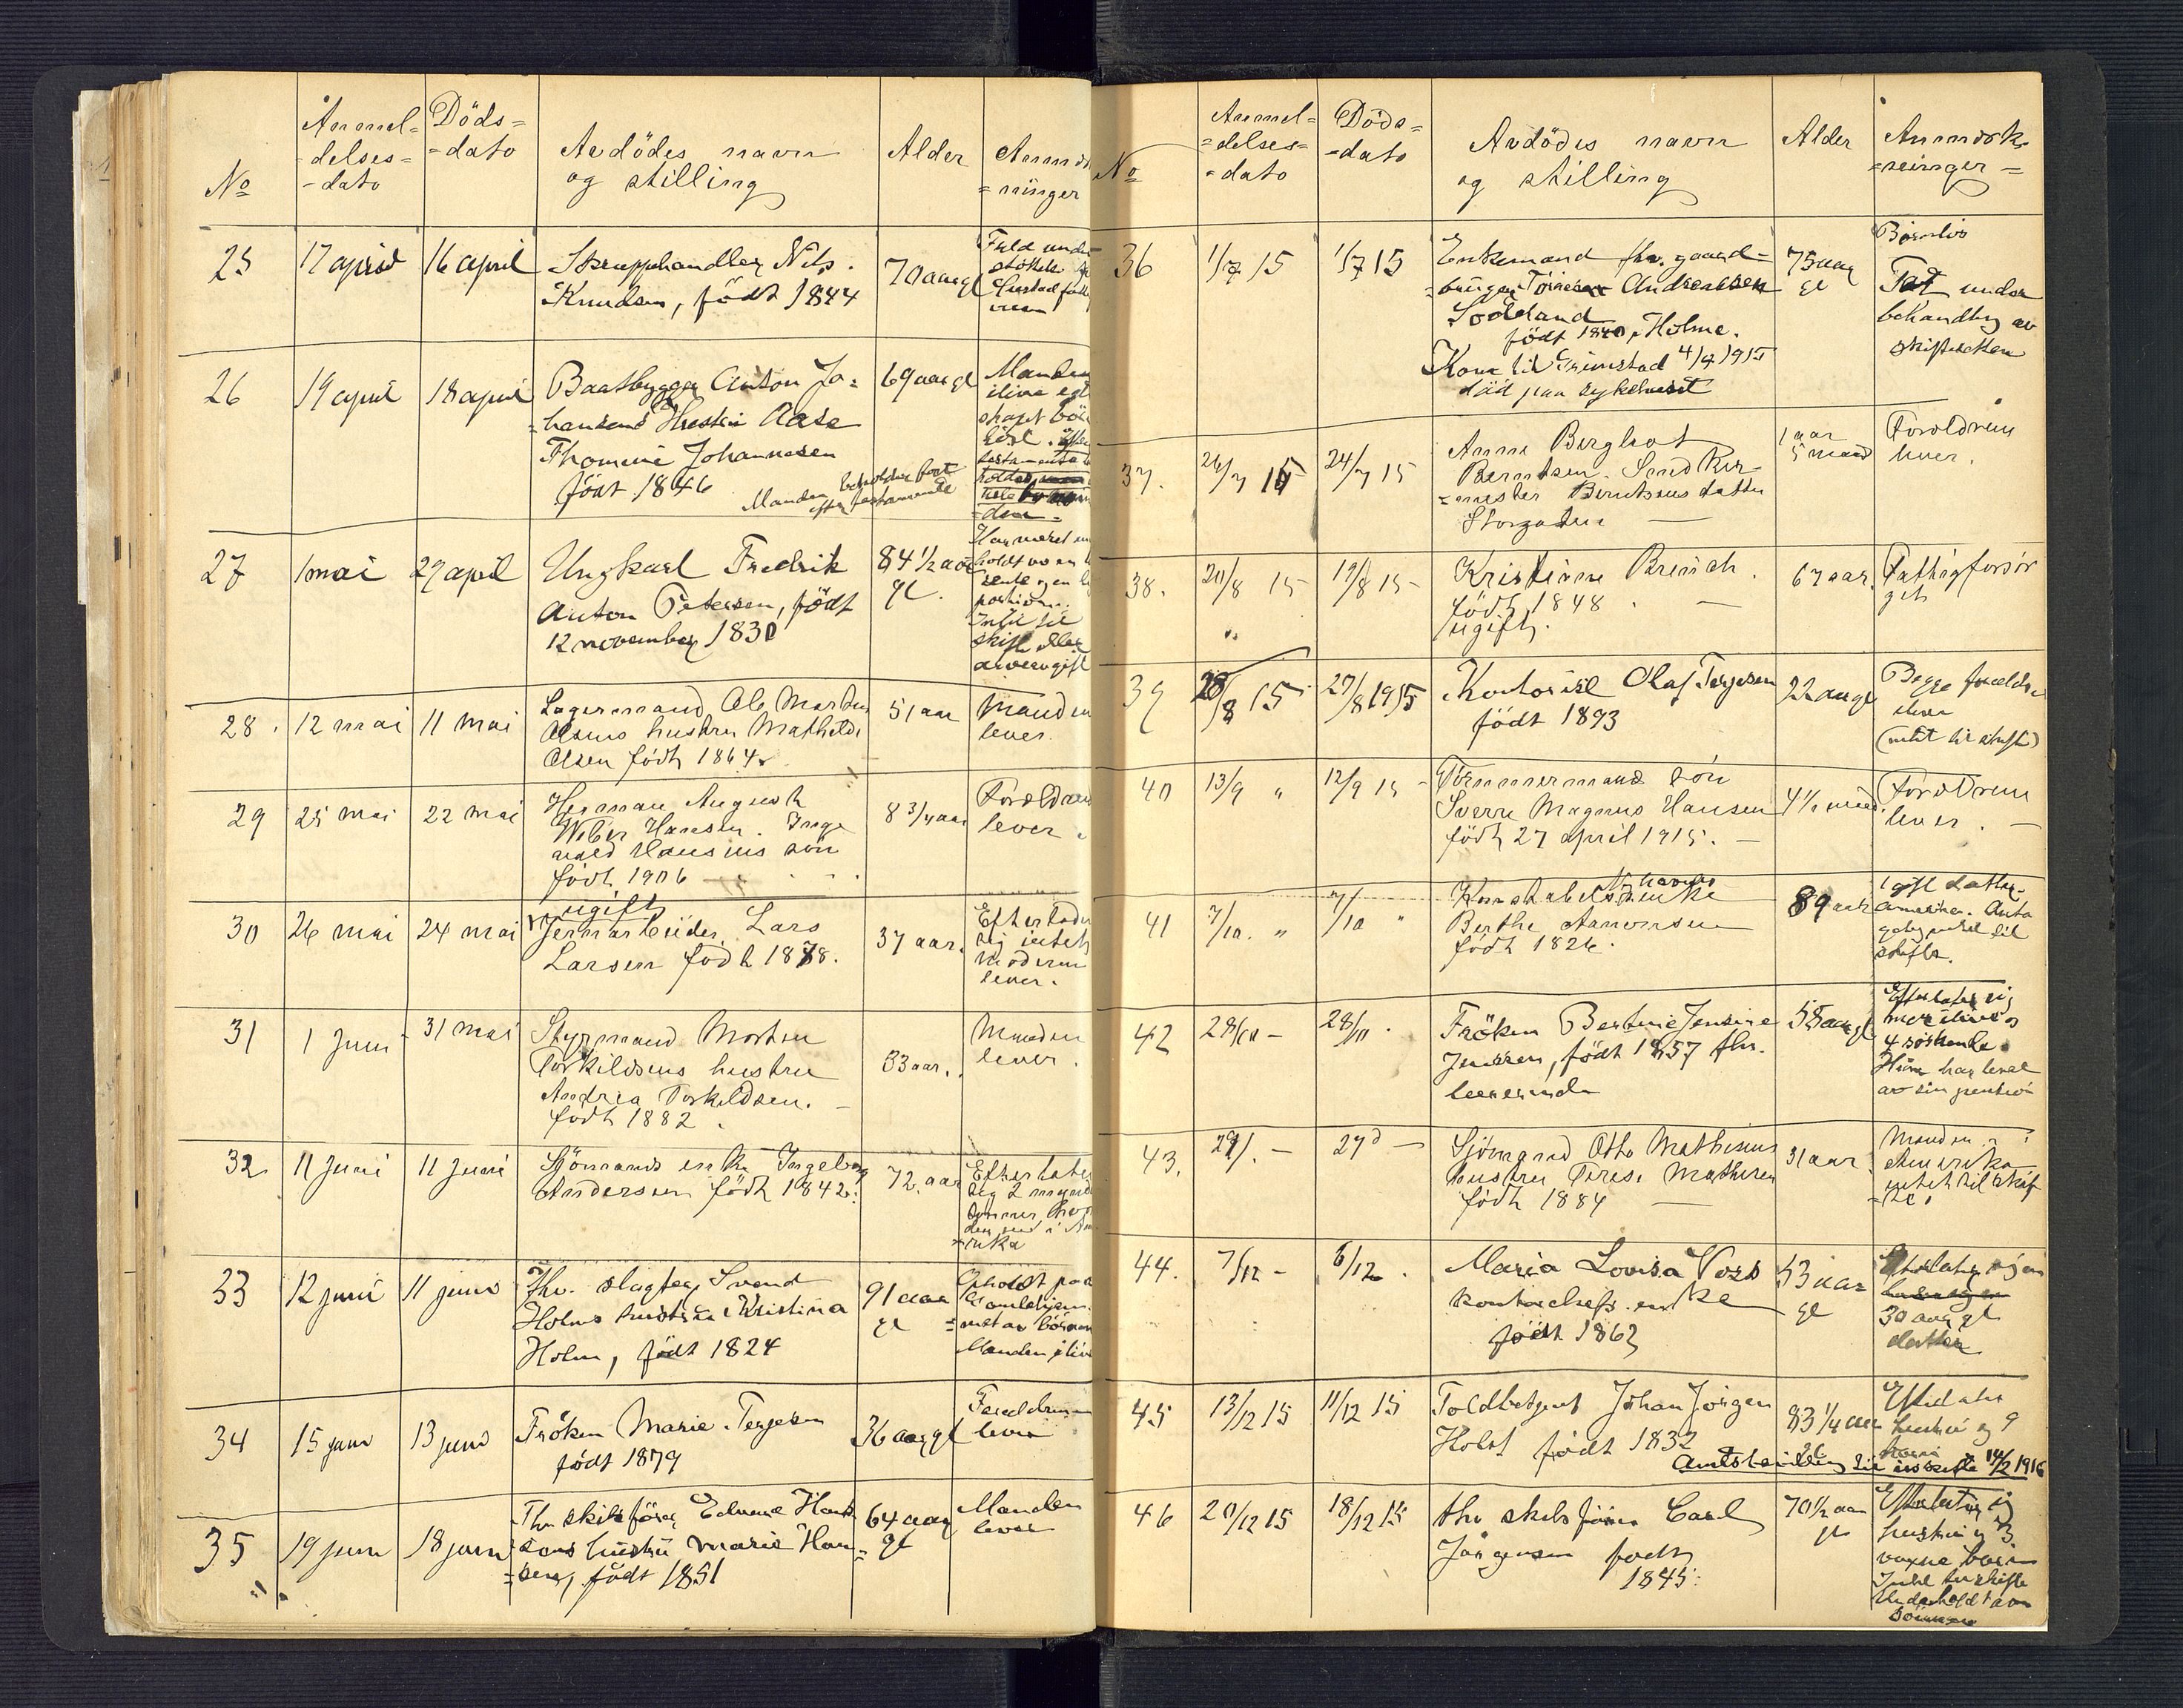 No
Anmel=
=delses=
=dato
Döds=
=dato
Avdödes navn
og stilling
Alder
Anmö
=ninger
25
17 april
16 april
Skrapphandler Nils
Knudsen, född 1844
70 aar gl
26
19 april
18 april
Baatbygger Anton Jo=
=hansens Hustru Aase
Thomine Johannesen
född 1846
Manden beholder boet
efter testamente
69 aar gl
Manden
ilive
27
1 mai
29 april
Ungkarl Fredrik
Anton Petersen, född
12 november 1830
84 1/2 aar
gl.
Intet til
skifte eller
arveavgift
28.
12 mai
11 mai
Lagermand Ole Martin
Olsens hustru Mathilde
Olsen född 1864.
51 aar
Manden
lever.
29
25 mai
22 mai
Herman August
Hansen. Inge
vald Hansens sön
född 1906
8 3/4 aar
Foreldrene
lever.
30
26 mai
24 mai
ugift
Jernarbeider Lars
Larsen född 1878.
37 aar.
Efterlader
sig intet
Moderen
lever.
31
1 Juni
31 mai
Styrmand Morten
Torkildsens hustru
Andrea Torkildsen.
född 1882.
33 aar.
Manden
lever.
32
11 Juni
11 Juni
Sjömands enke Ingeborg
Andersen född 1842.
72. aar
Efterlater
sig 2 myndige
33
12 juni
11 juni
Fhv. slagter Svend
Holms hustru Kristina
Holm, född 1824
91 aar
gl
Manden ilive
34
15 juni
13 juni
Fröken Marie Terjesen
född 1879
36 aar gl
Foreldrene
lever
35
19 juni
18 juni
Fhv skibsförer Edvard Han
sens hustru Marie Han=
=sen, född 1851
64 aar
gl
Manden
lever
No
Anmel=
=delses=
=dato
Döds=
=dato
Avdödes navn
og stilling
Alder
Anmörk-
=ninger=
36
1/7 15
1/7 15
Enkemand fhv. gaard=
=bruger Andreassen
född 1840 i Holme.
Kom til Grimstad 4/7 1915
död paa sykehuset
75 aar
gl
Barnlös
Tat under
behandling av
skifteretten
37.
26/7 15
24/7 15
Anne Bergliot
Berntsen. Snedker
=mester Berntsens datter
Storgaten
1 aar
5 maand
Foreldrene
lever.
38.
20/8 15
19/8 15
Kristiane Brinch.
född 1848.
ugift.
67 aar.
Fattigforsör
get
39
28/8 15
27/8 1915
Kontorist Olaf Terjesen
född 1893
22 aar gl
Begge foreldre
ilive
(intet til skifte)
40
13/9 "
12/9 15
Tömmermand sön
Sverre Magnus Hansen
född 27 april 1915.
4 1/2 maned.
Foreldrene
lever.
41
7/10. "
7/10 "
Konstabels enke
Berthe Aanonsen
född 1826.
89 aar
1 gift datter
Amerika. Anta
gelig intet til
skifte.
42
28/10 -
28/10.
Fröken Bertine Jensine
Jenssen, född 1857 fhv.
leererinde
58 aar gl
Efterlater sig
mor ilive og
4 söskende.
Hun har levet
av sin pension
43.
29/. -
27 d
Sjömand Otto Mathisens
hustru Terese Mathisen
född 1884
31 aar.
Manden i
Amerika
intet til skif
=te.
44.
7/12 -
6/12.
Maria Lovisa Voss
kontorchefs enke
född 1862
53 aar
gl
Efterlater sig en
30 aar gl
datter
45
13/12 15
11/12 15
Toldbetjent Johan Jörgen
Holst född 1832
83 1/4 aar
gl
Efterlater
hustru og 9
barn
Amtsbevilling til uskifte 14/2 1916
46
20/12 15
18/12 15
fhv skibsförer Carl
Jörgensen född
1845.
70 1/2 aar
gl
Efterlater sig
hustru og 3
voxne barn
Intet til skifte
Underholdt av
sönnene